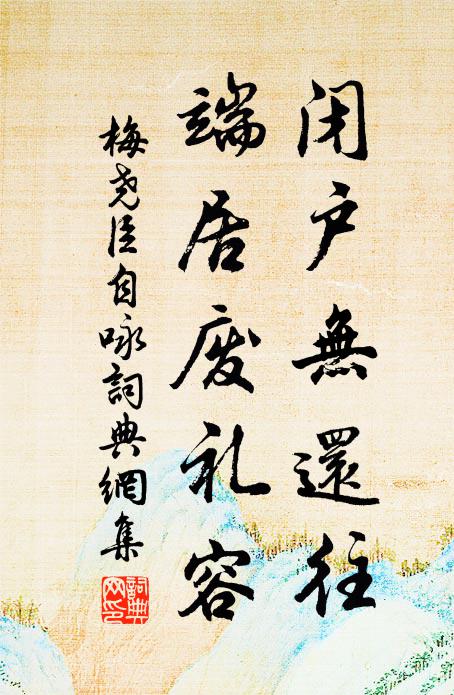 闭户無還往
端居废礼容
梅尧臣自咏詞典網集
詞典网印